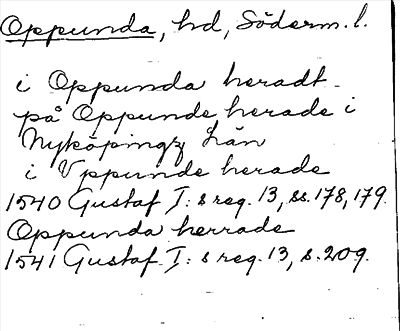 Oppunda, hd, Söderm. l.
i Oppunda heradt
på Oppunde herade i
Nyköpingz Län
i Vppunde herade
1540 Gustaf I: s reg. 13, ss. 178, 179.
Oppunda herrade
1541 Gustaf I: s reg. 13, s. 209.